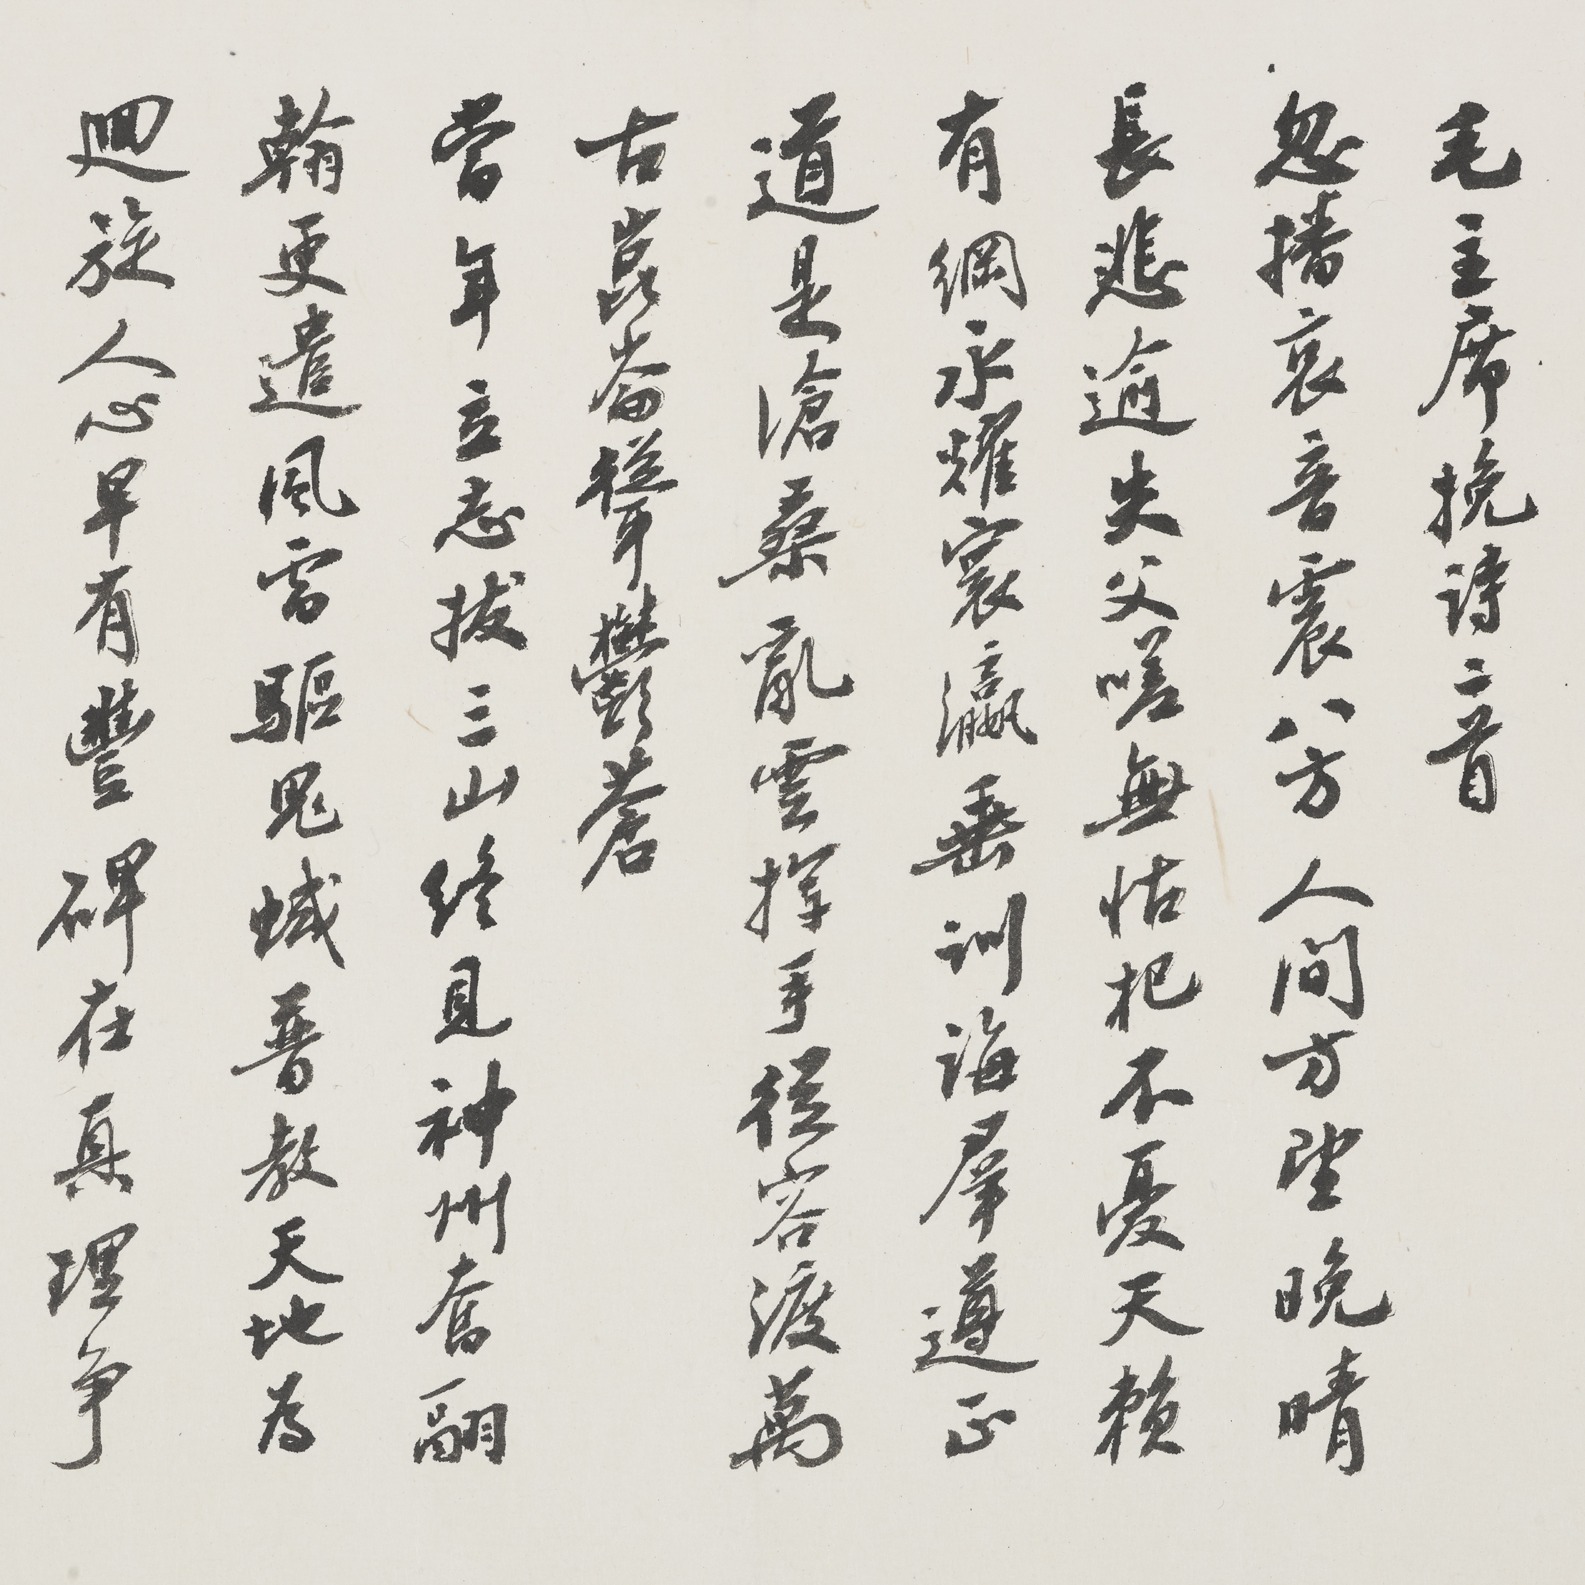 毛主席挽詩二首
忽播哀音震八方人間方望晚晴
長悲逾失父嗟無怙杞不憂天賴
有綱永耀寰瀛垂訓誨羣遵正
道是滄桑亂雲揮手從容渡萬
古崑崙聳鬱蒼
當年立志拔三山終見神州奮翮
翰更遣風雷驅鬼蜮普教天地為
迴旋人心早有豐碑在真理爭